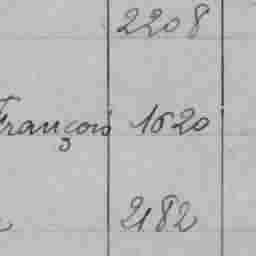 2208
François 1620
2182